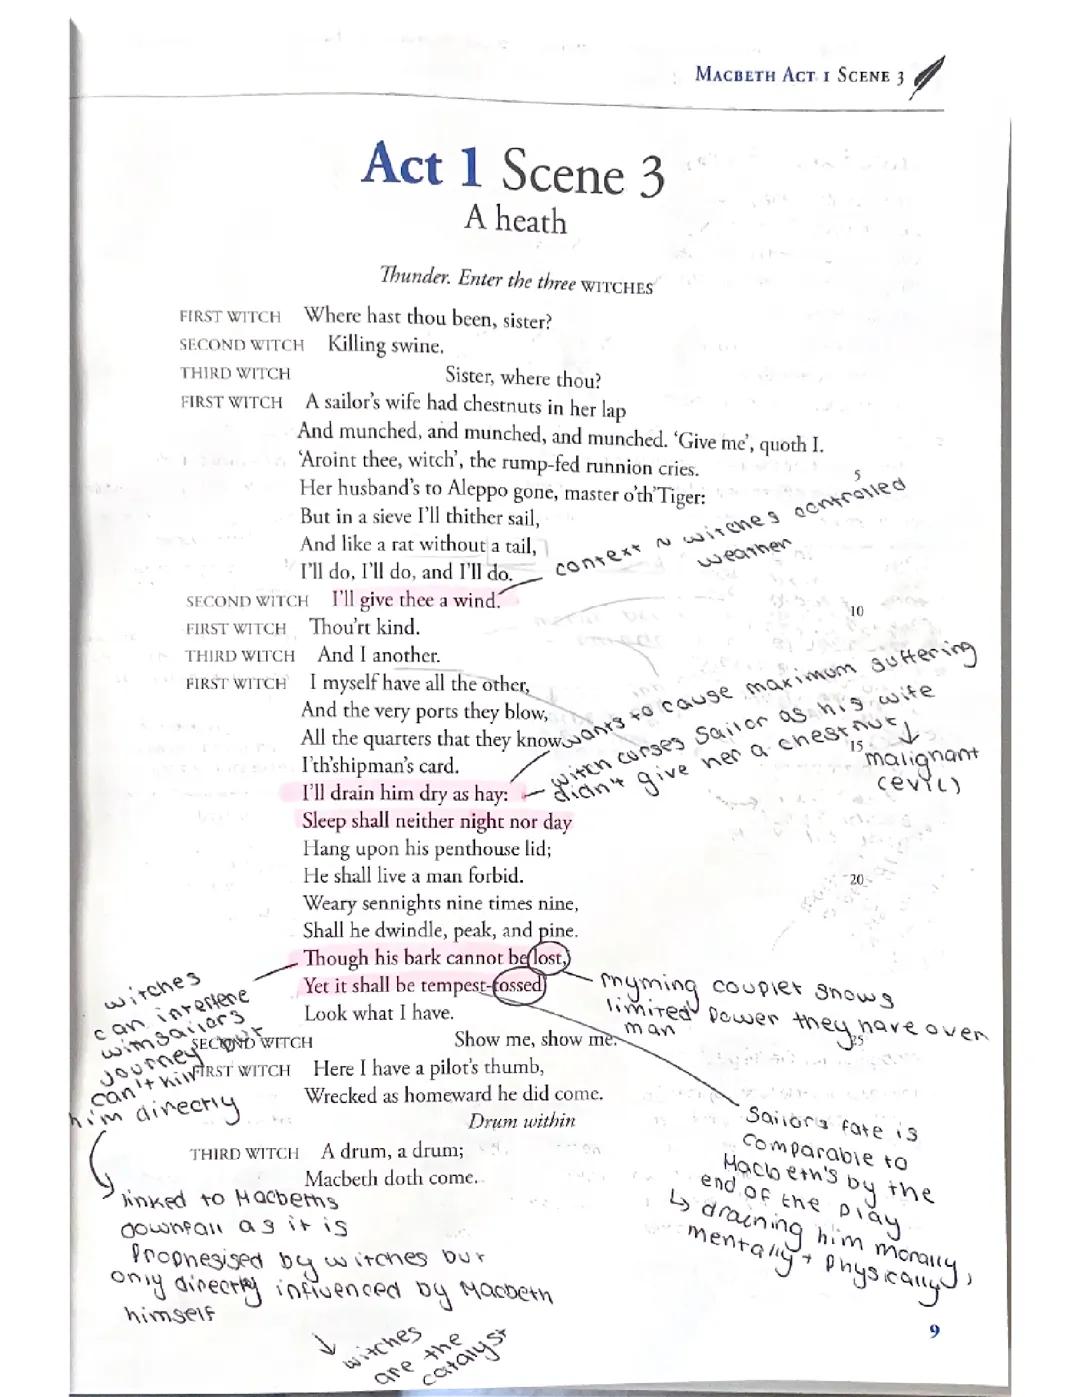 MACBETH ACT 1 SCENE 3
Act 1 Scene 3
A heath
Thunder. Enter the three WITCHES
FIRST WITCH Where hast thou been, sister?
SECOND WITCH Killing swine.
THIRD WITCH Sister, where thou?
FIRST WITCH A sailor's wife had chestnuts in her lap
And munched, and munched, and munched. 'Give me', quoth I.
'Aroint thee, witch', the rump-fed runnion cries.
5
Her husband's to Aleppo gone, master o'th'Tiger:
But in a sieve I'll thither sail,
And like a rat without a tail,
I'll do, I'll do, and I'll do.
context ~ witches controlled
weather
SECOND WITCH I'll give thee a wind.
10
FIRST WITCH Thou'rt kind.
THIRD WITCH And I another.
FIRST WITCH I myself have all the other,
And the very ports they blow,
All the quarters that they know
wants to cause maximum suffering
I'th'shipman's card.
15
witch curses sailor as his wife
didn't give her a chestnut
malignant
(evil)
I'll drain him dry as hay:
Sleep shall neither night nor day
Hang upon his penthouse lid;
He shall live a man forbid.
20
Weary sennights nine times nine,
Shall he dwindle, peak, and pine.
Though his bark cannot be lost,
Yet it shall be tempest-tossed.
Look what I have.
rhyming couplet shows
limited power they have over
man
SECOND WITCH Show me, show me.
25
FIRST WITCH Here I have a pilot's thumb,
Wrecked as homeward he did come.
Drum within
THIRD WITCH A drum, a drum;
Macbeth doth come.
witches
can interfere
with sailors
journey but
can't kill
him directly
linked to Macbeths
downfall as it is
Prophesised by witches but
only directly influenced by Macbeth
himself
witches
are the
catalyst
Sailors fate is
comparable to
Macbeth's by the
end of the play
draining him morally,
mentally + Physically
9